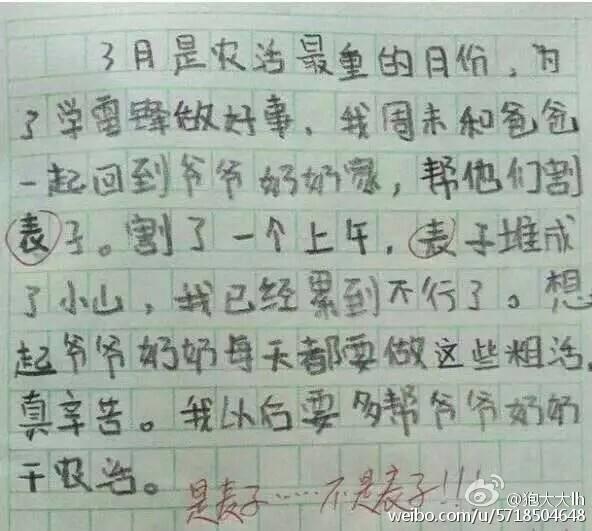 3月是农活最重的月份，为
了学雷锋做好事，我周末和爸爸
一起回到爷爷奶奶家，帮他们割
表子。割了一个上午，表子堆成
了小山，我已经累到不行了。想
起爷爷奶奶每天都要做这些粗活，
真辛告。我以后要多帮爷爷奶奶
干农活。
是麦子……不是表子!!!
@狍大大lh
weibo.com/u/5718504648